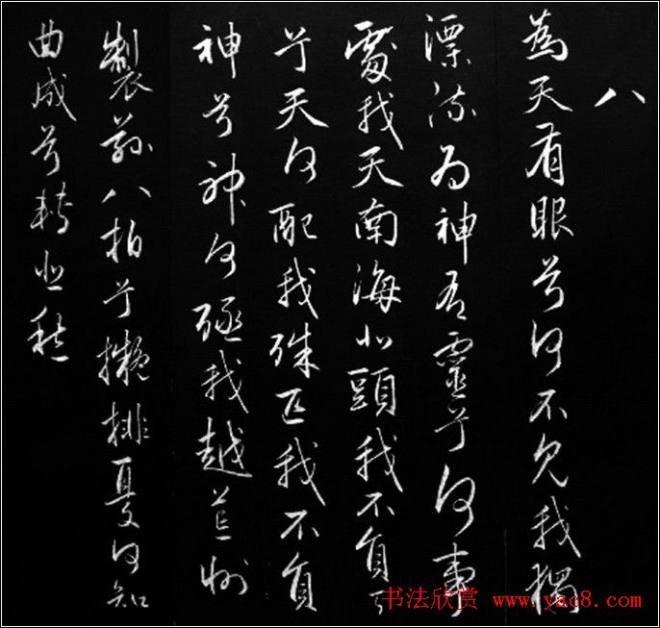 八
為天有眼兮何不見我獨
漂流為神有靈兮何事
處我天南海北頭我不負
兮天何配我殊匹我不負
神兮神何殛我越荒州
製茲八拍兮擬排憂何知
曲成兮轉悲愁
书法欣赏 www.yac8.com